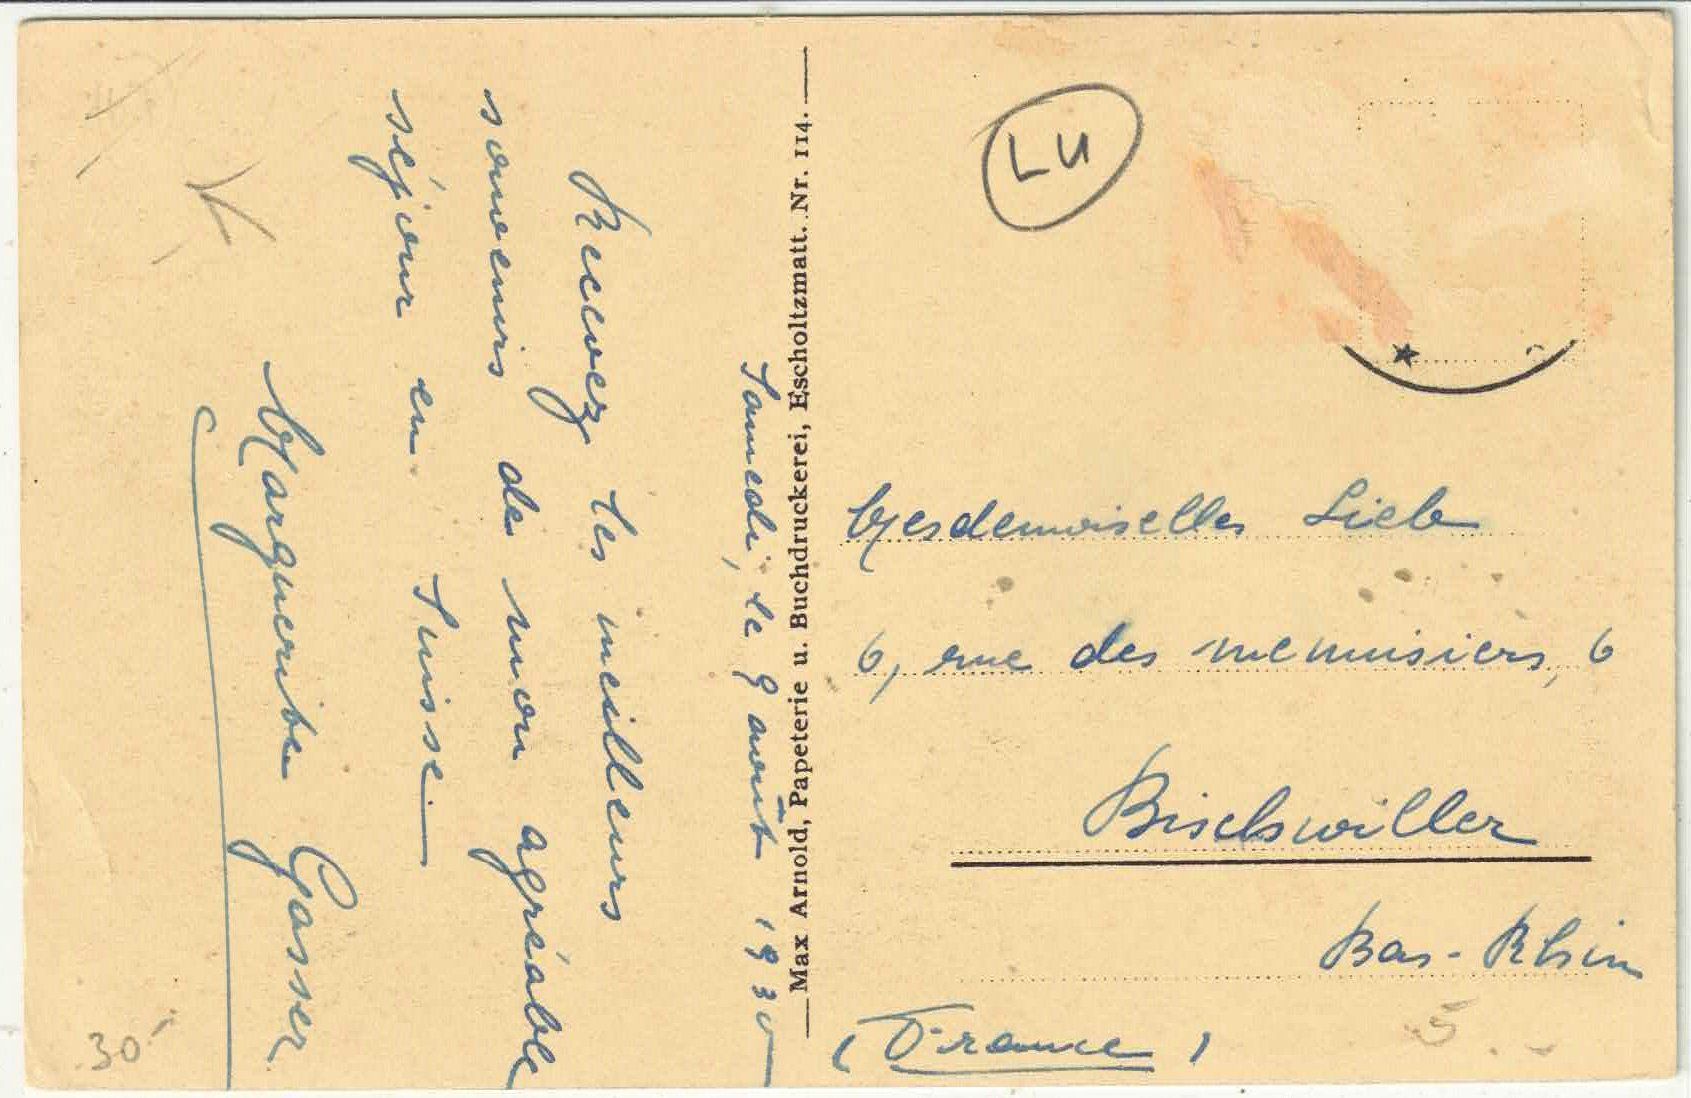 Samedi, le 9 août 1930
Recevez les meilleurs
souvenirs de mon agréable
séjour en Suisse.
Marguerite Gasser
Max Arnold, Papeterie u. Buchdruckerei, Escholtzmatt. Nr. 114.
LU
Mesdemoiselles Lieb
6, rue des menuisiers, 6
Bischwiller
Bas-Rhin
(France)
30
5